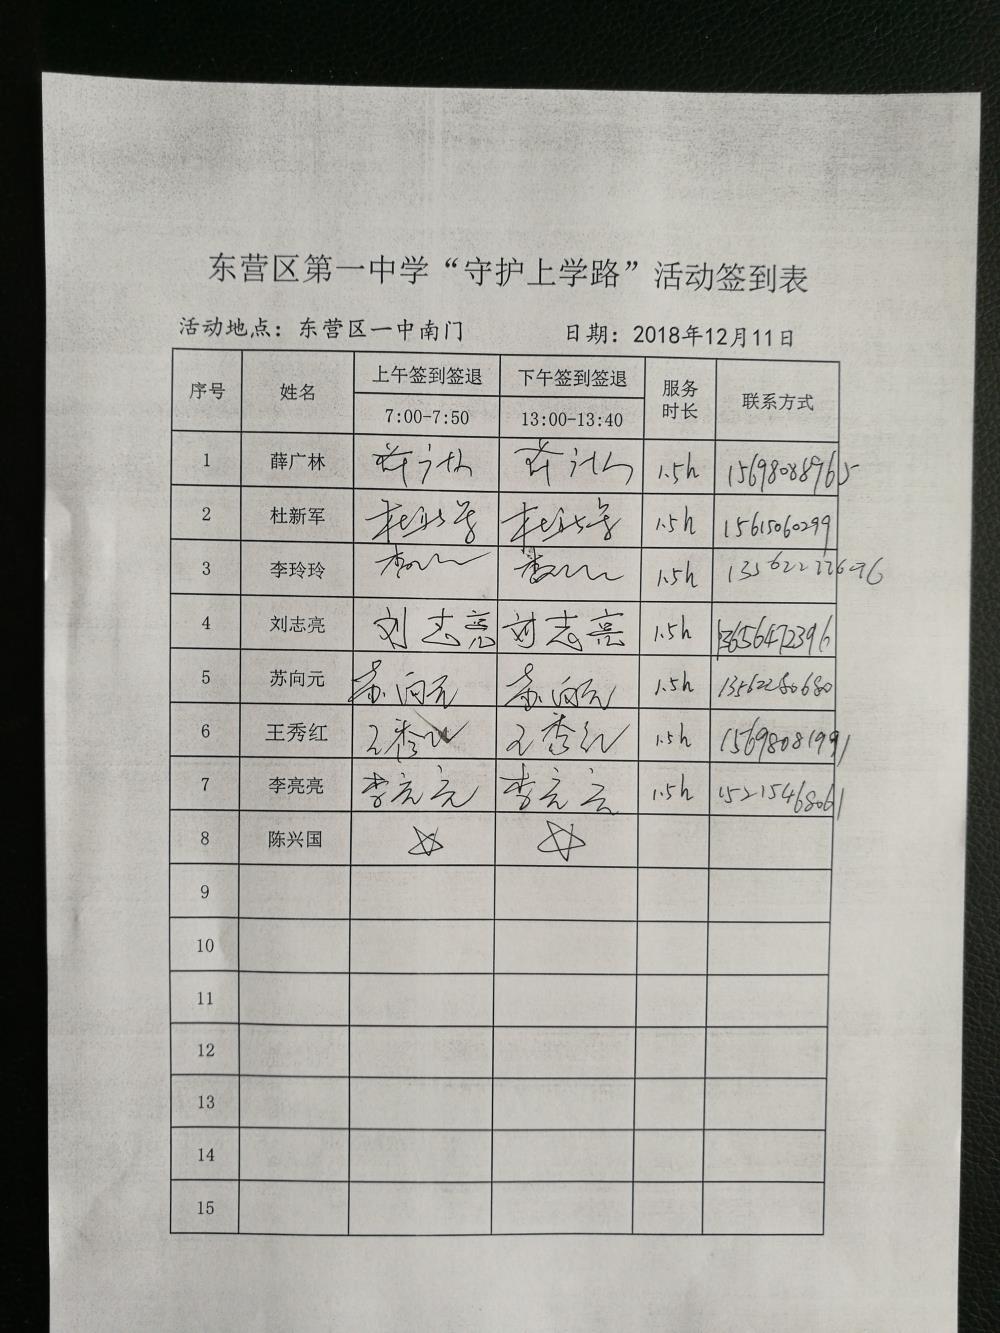 东营区第一中学“守护上学路”活动签到表
活动地点：东营区一中南门 日期：2018年12月11日
序号 姓名 上午签到签退 下午签到签退 服务时长 联系方式
7:00-7:50 13:00-13:40
1 薛广林 薛广林 薛广林 1.5h 15698088965
2 杜新军 杜新军 杜新军 1.5h 15615060299
3 李玲玲 1.5h 13562227696
4 刘志亮 刘志亮 刘志亮 1.5h 13656472396
5 苏向元 苏向元 苏向元 1.5h 13562280680
6 王秀红 王秀红 王秀红 1.5h 15698081991
7 李亮亮 李亮亮 李亮亮 1.5h 15215468061
8 陈兴国
9
10
11
12
13
14
15